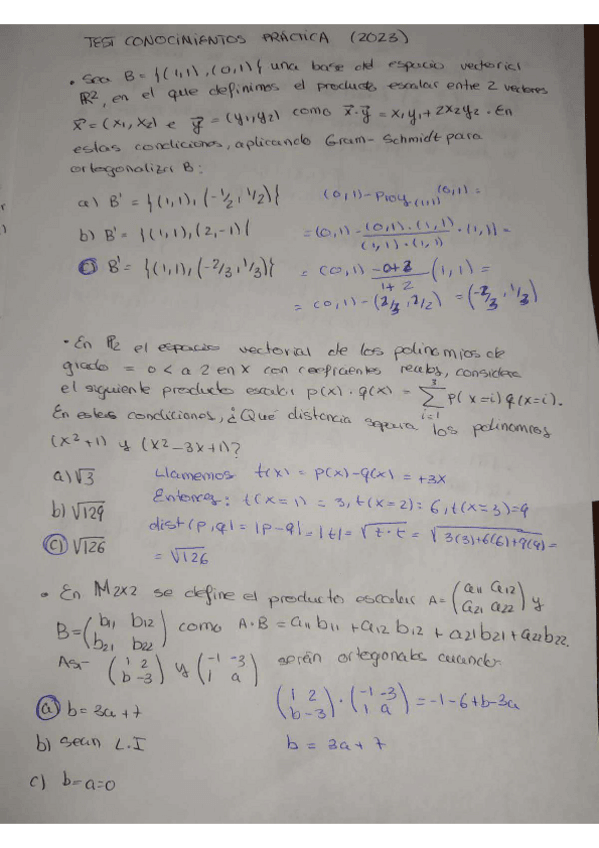 TEST CONOCIMIENTOS PRÁCTICA (2023)
• Sea B = {(1,1), (0,1)} una base del espacio vectorial
R², en el que definimos el producto escalar entre 2 vectores
x⃗ = (x₁, x₂) e y⃗ = (y₁, y₂) como x⃗·y⃗ = x₁y₁ + 2x₂y₂. En
estas condiciones, aplicando Gram-Schmidt para
ortogonalizar B:
a) B' = {(1,1), (-1/2, 1/2)}
b) B' = {(1,1), (2,-1)}
c) B' = {(1,1), (-2/3, 1/3)}
(0,1) - Proy₍₁,₁₎(0,1) =
= (0,1) - (0,1)·(1,1)/(1,1)·(1,1) · (1,1) =
= (0,1) - 0+2/1+2 (1,1) =
= (0,1) - (2/3, 2/2) = (-2/3, 1/3)
• En P₂ el espacio vectorial de los polinomios de
grado = o < a 2 en X con coeficientes reales, considere
el siguiente producto escalar p(x)·q(x) = ∑³ᵢ₌₁ p(x=i)q(x=i).
En estas condiciones, ¿Qué distancia separa los polinomios
(x²+1) y (x²-3x+1)?
a) √3
b) √129
c) √126
Llamemos t(x) = p(x)-q(x) = +3x
Entonces: t(x=1) = 3, t(x=2) = 6, t(x=3)=9
dist(p,q) = |p-q| = |t| = √t·t = √3(3)+6(6)+9(9) =
= √126
• En M2x2 se define el producto escalar A = (a₁₁ a₁₂ / a₂₁ a₂₂) y
B = (b₁₁ b₁₂ / b₂₁ b₂₂) como A·B = a₁₁b₁₁ + a₁₂b₁₂ + a₂₁b₂₁ + a₂₂b₂₂.
Así (1 2 / b -3) y (-1 -3 / 1 a) serán ortogonales cuando:
a) b = 3a + 7
b) Sean L.I
c) b=a=0
(1 2 / b -3) · (-1 -3 / 1 a) = -1-6+b-3a
b = 3a + 7